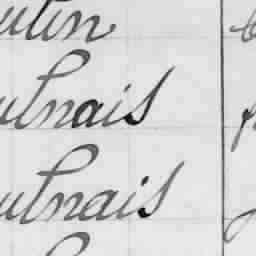 ulin
ulnais
ulnais